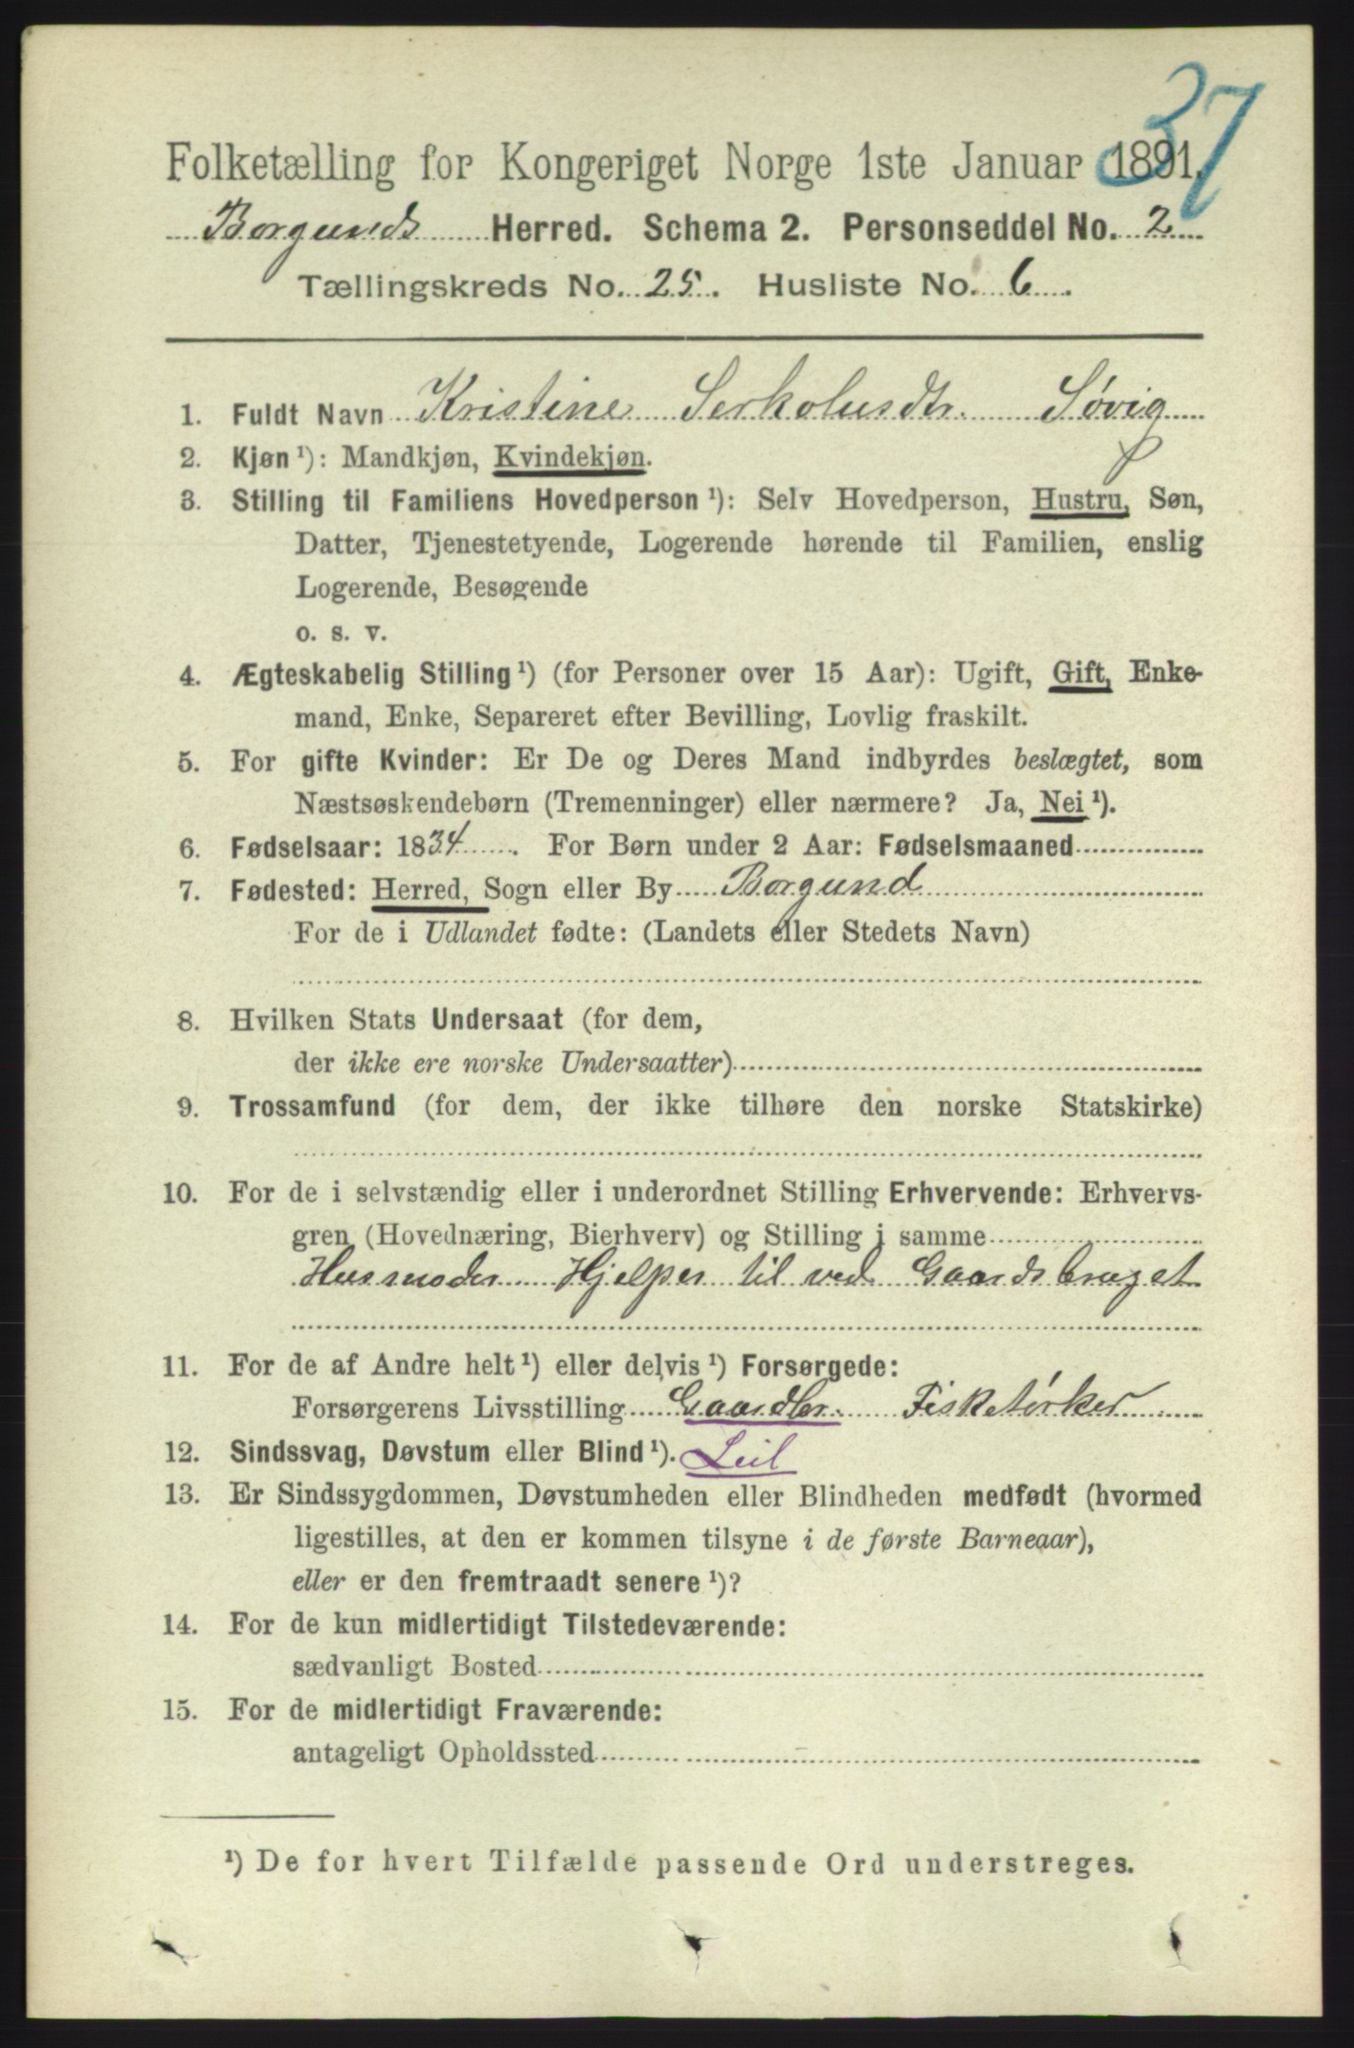 37
Folketælling for Kongeriget Norge 1ste Januar 1891.
Borgunds Herred. Schema 2. Personseddel No. 2
Tællingskreds No. 25. Husliste No. 6.
1. Fuldt Navn Kristine Serkolusdtr. Søvig
2. Kjøn ¹): Mandkjøn, Kvindekjøn.
3. Stilling til Familiens Hovedperson ¹): Selv Hovedperson, Hustru, Søn,
Datter, Tjenestetyende, Logerende hørende til Familien, enslig
Logerende, Besøgende
o. s. v.
4. Ægteskabelig Stilling ¹) (for Personer over 15 Aar): Ugift, Gift, Enke-
mand, Enke, Separeret efter Bevilling, Lovlig fraskilt.
5. For gifte Kvinder: Er De og Deres Mand indbyrdes beslægtet, som
Næstsøskendebørn (Tremenninger) eller nærmere? Ja, Nei ¹).
6. Fødselsaar: 1834. For Børn under 2 Aar: Fødselsmaaned
7. Fødested: Herred, Sogn eller By Borgund
For de i Udlandet fødte: (Landets eller Stedets Navn)
8. Hvilken Stats Undersaat (for dem,
der ikke ere norske Undersaatter)
9. Trossamfund (for dem, der ikke tilhøre den norske Statskirke)
10. For de i selvstændig eller i underordnet Stilling Erhvervende: Erhvervs-
gren (Hovednæring, Bierhverv) og Stilling i samme
Husmoder Hjelper til ved Gaardsbruget
11. For de af Andre helt ¹) eller delvis ¹) Forsørgede:
Forsørgerens Livsstilling Gaardbr. Fisketørker
12. Sindssvag, Døvstum eller Blind ¹). Leil
13. Er Sindssygdommen, Døvstumheden eller Blindheden medfødt (hvormed
ligestilles, at den er kommen tilsyne i de første Barneaar),
eller er den fremtraadt senere ¹)?
14. For de kun midlertidigt Tilstedeværende:
sædvanligt Bosted
15. For de midlertidigt Fraværende:
antageligt Opholdssted
¹) De for hvert Tilfælde passende Ord understreges.